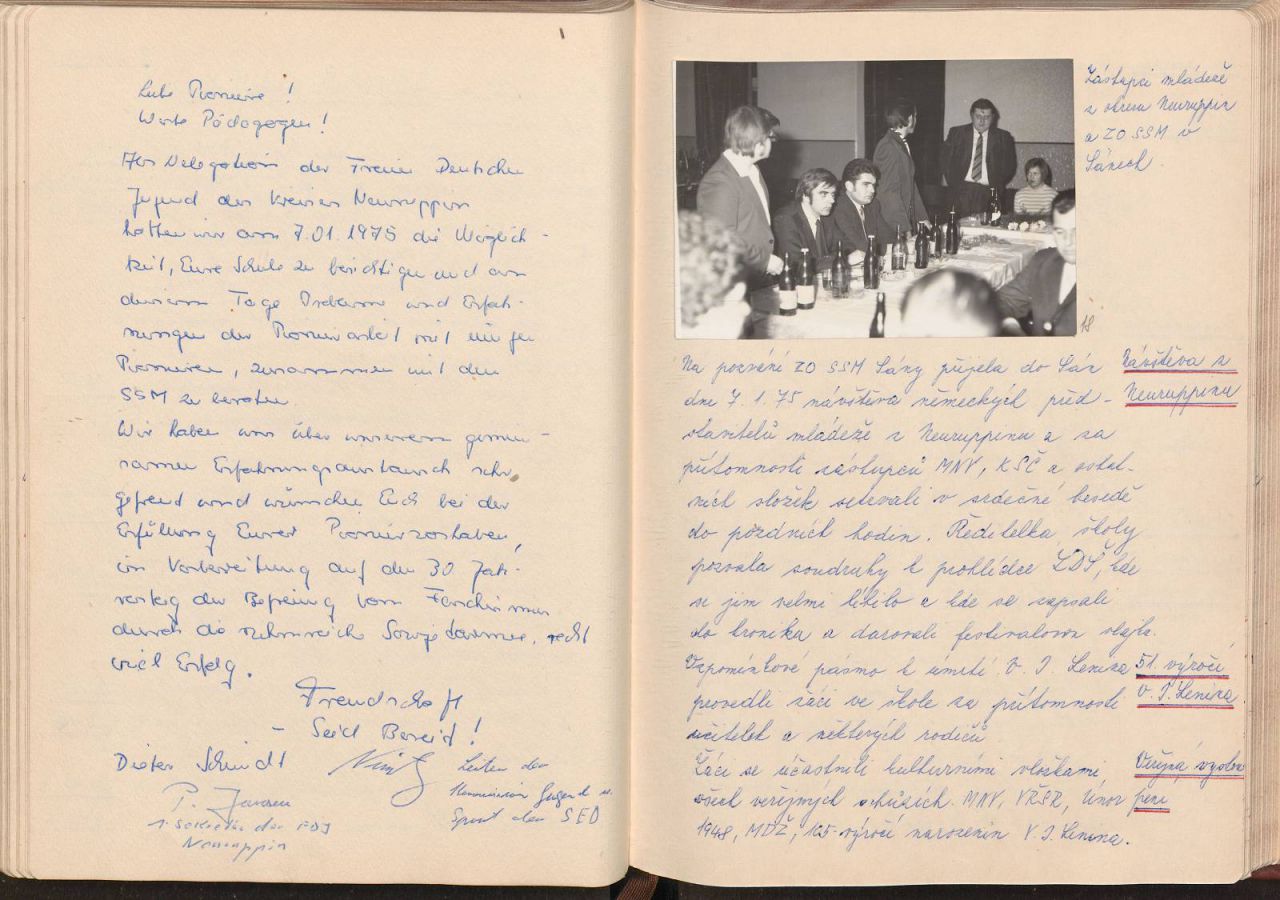 Liebe Pioniere!
Werte Pädagogen!
Als Delegation der Freien Deutschen
Jugend des Kreises Neuruppin
hatten wir am 7.01.1975 die Möglich-
keit, Eure Schule zu besichtigen und an
diesem Tage Probleme und Erfah-
rungen der Pionierarbeit mit einigen
Pionieren, zusammen mit dem
SSM zu beraten.
Wir haben uns über unseren gemein-
samen Erfahrungsaustausch sehr
gefreut und wünschen Euch bei der
Erfüllung Eurer Pioniervorhaben,
in Vorbereitung auf den 30 Jah-
restag der Befreiung vom Faschismus
durch die ruhmreiche Sowjetarmee, recht
viel Erfolg.
Freundschaft
- Seid Bereit!
Dieter Schmidt
Leiter der
Kommission Jugend u.
Sport der SED
1. Sekretär der FDJ
Neuruppin
Zástupci mládeže
z okresu Neuruppin
a ZO SSM v
Lánech.
18
Na pozvání ZO SSM Lány přijela do Lán
Návštěva z
Neuruppinu
dne 7.1.75 návštěva německých před-
stavitelů mládeže z Neuruppinu a za
přítomnosti zástupců MNV, KSČ a ostat-
ních složek setrvali v srdečné besedě
do pozdních hodin. Ředitelka školy
pozvala soudruhy k prohlídce ZDŠ, kde
se jim velmi líbilo a kde se zapsali
do kroniky a darovali festivalovou vlajku.
Vzpomínkové pásmo k úmrtí V. I. Lenina
51. výročí
V. I. Lenina
provedli žáci ve škole za přítomnosti
učitelek a některých rodičů
Žáci se účastnili kulturními vložkami
Veřejná vystou
pení
všech veřejných schůzích. MNV, VŘSR, Únor
1948, MDŽ, 105. výročí narozenin V. I. Lenina.